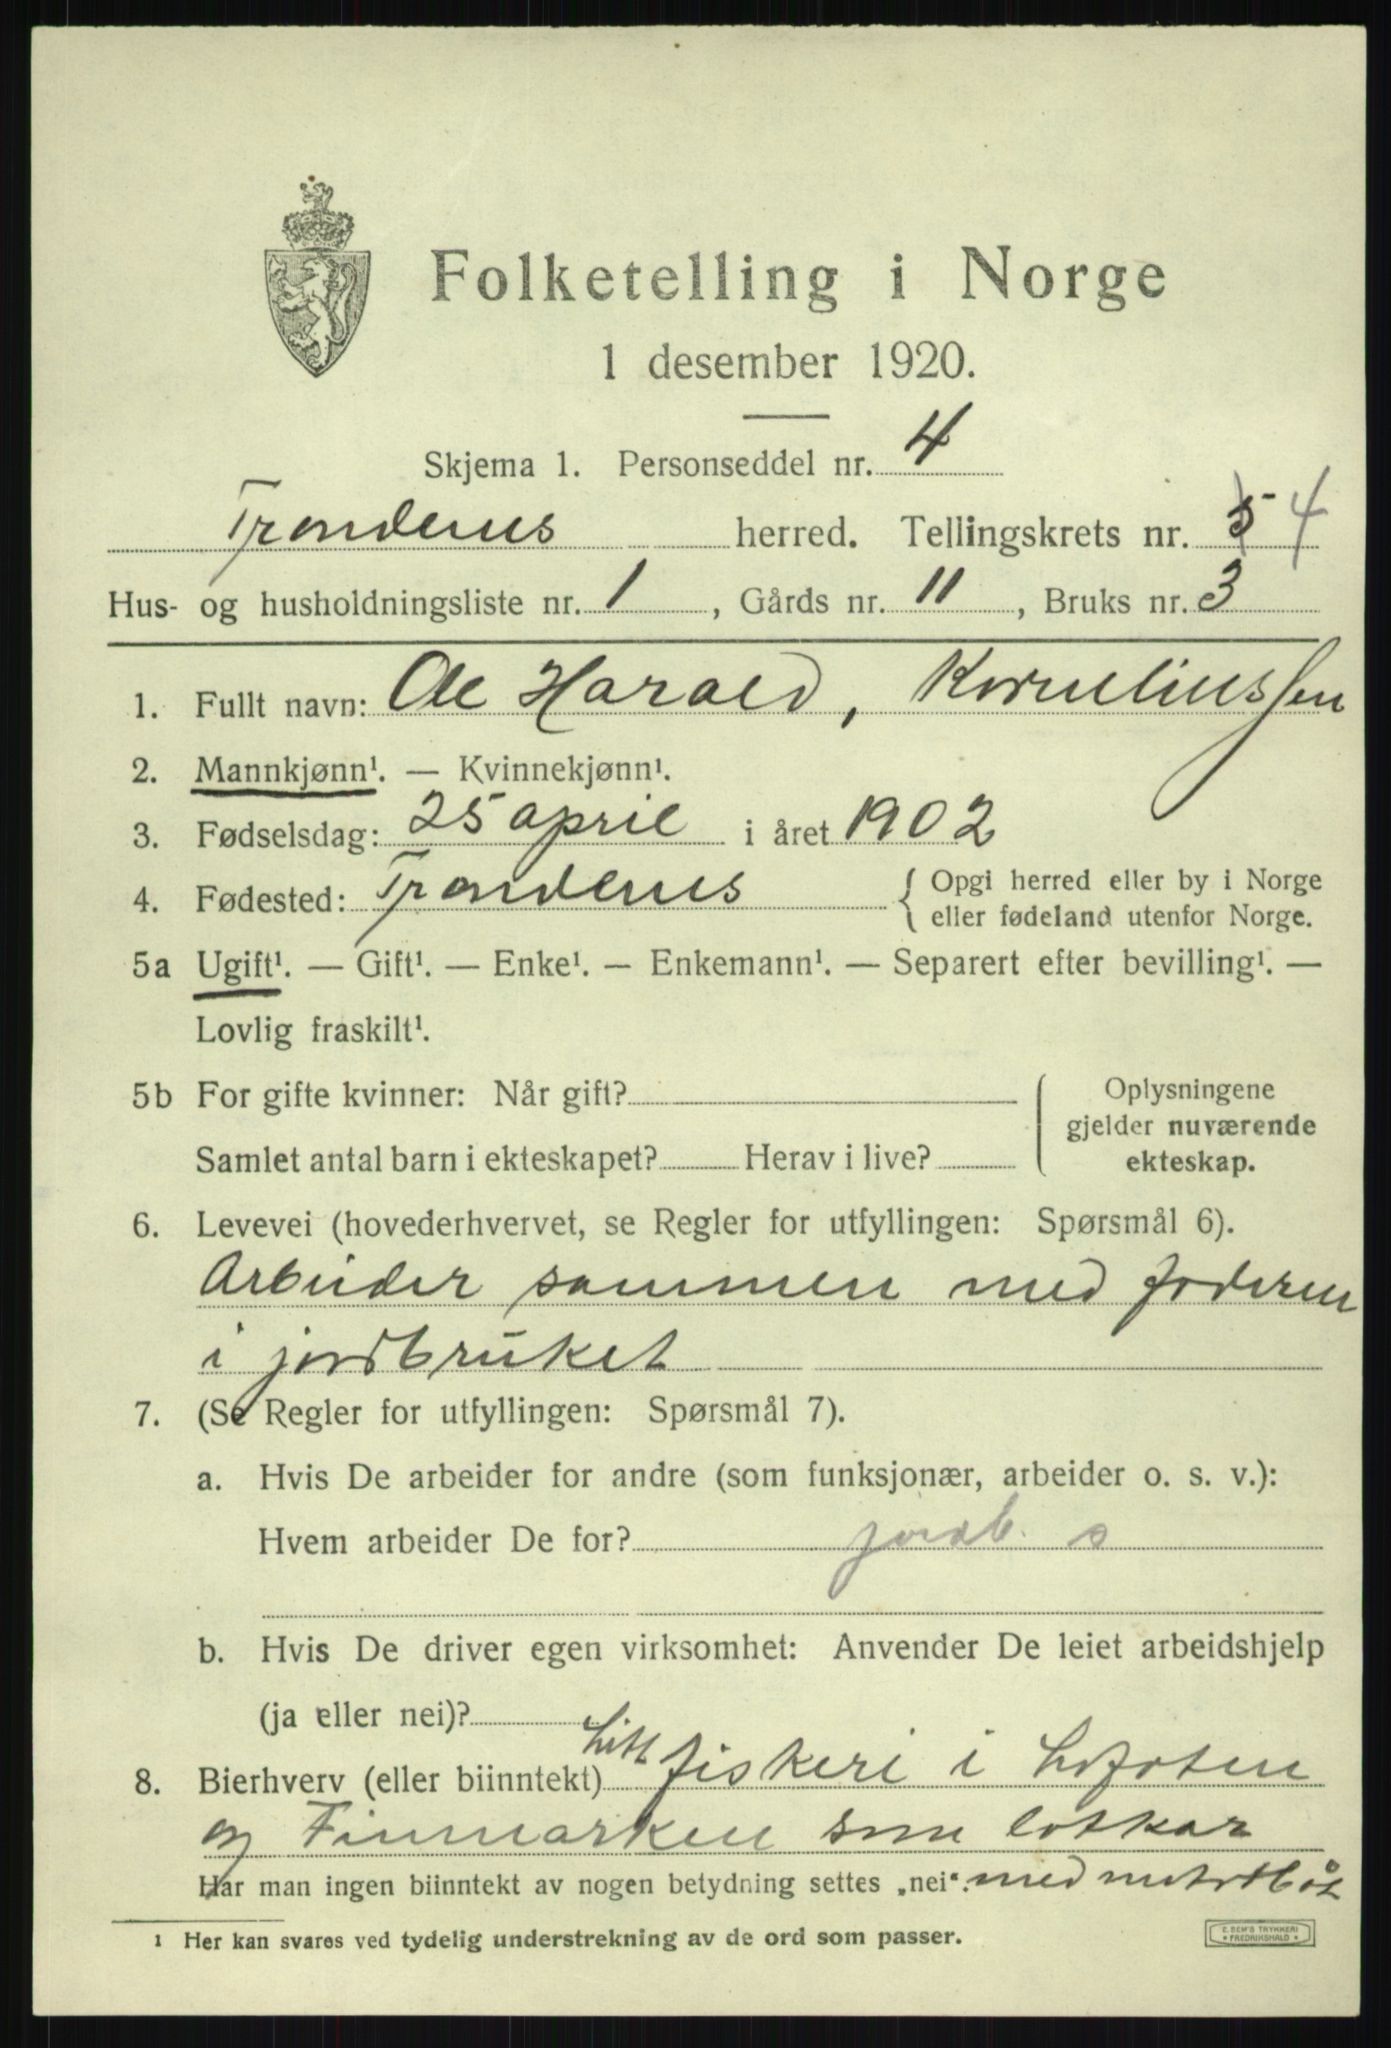 Folketelling i Norge
1 desember 1920.
Skjema 1. Personseddel nr. 4
Trondenes herred. Tellingskrets nr. 5 4
Hus- og husholdningsliste nr. 1, Gårds nr. 11, Bruks nr. 3
1. Fullt navn: Ole Harald, Korneliussen
2. Mannkjønn¹. — Kvinnekjønn¹.
3. Fødselsdag: 25 april i året 1902
4. Fødested: Trondenes { Opgi herred eller by i Norge
eller fødeland utenfor Norge.
5a Ugift¹. — Gift¹. — Enke¹. — Enkemann¹. — Separert efter bevilling¹. —
Lovlig fraskilt¹.
5b For gifte kvinner: Når gift? Oplysningene
gjelder nuværende
Samlet antal barn i ekteskapet? Herav i live? ekteskap.
6. Levevei (hovederhvervet, se Regler for utfyllingen: Spørsmål 6).
Arbeider sammen med faderen
i jordbruket
7. (Se Regler for utfyllingen: Spørsmål 7).
a. Hvis De arbeider for andre (som funksjonær, arbeider o. s. v.):
Hvem arbeider De for? jordb. s
b. Hvis De driver egen virksomhet: Anvender De leiet arbeidshjelp
(ja eller nei)?
8. Bierhverv (eller biinntekt) Litt fiskeri i Lofoten
og Finmarken som lotkar
Har man ingen biinntekt av nogen betydning settes „nei“. med motorbåt
¹ Her kan svares ved tydelig understrekning av de ord som passer.
E. SEM'S TRYKKERI
FREDRIKSHALD